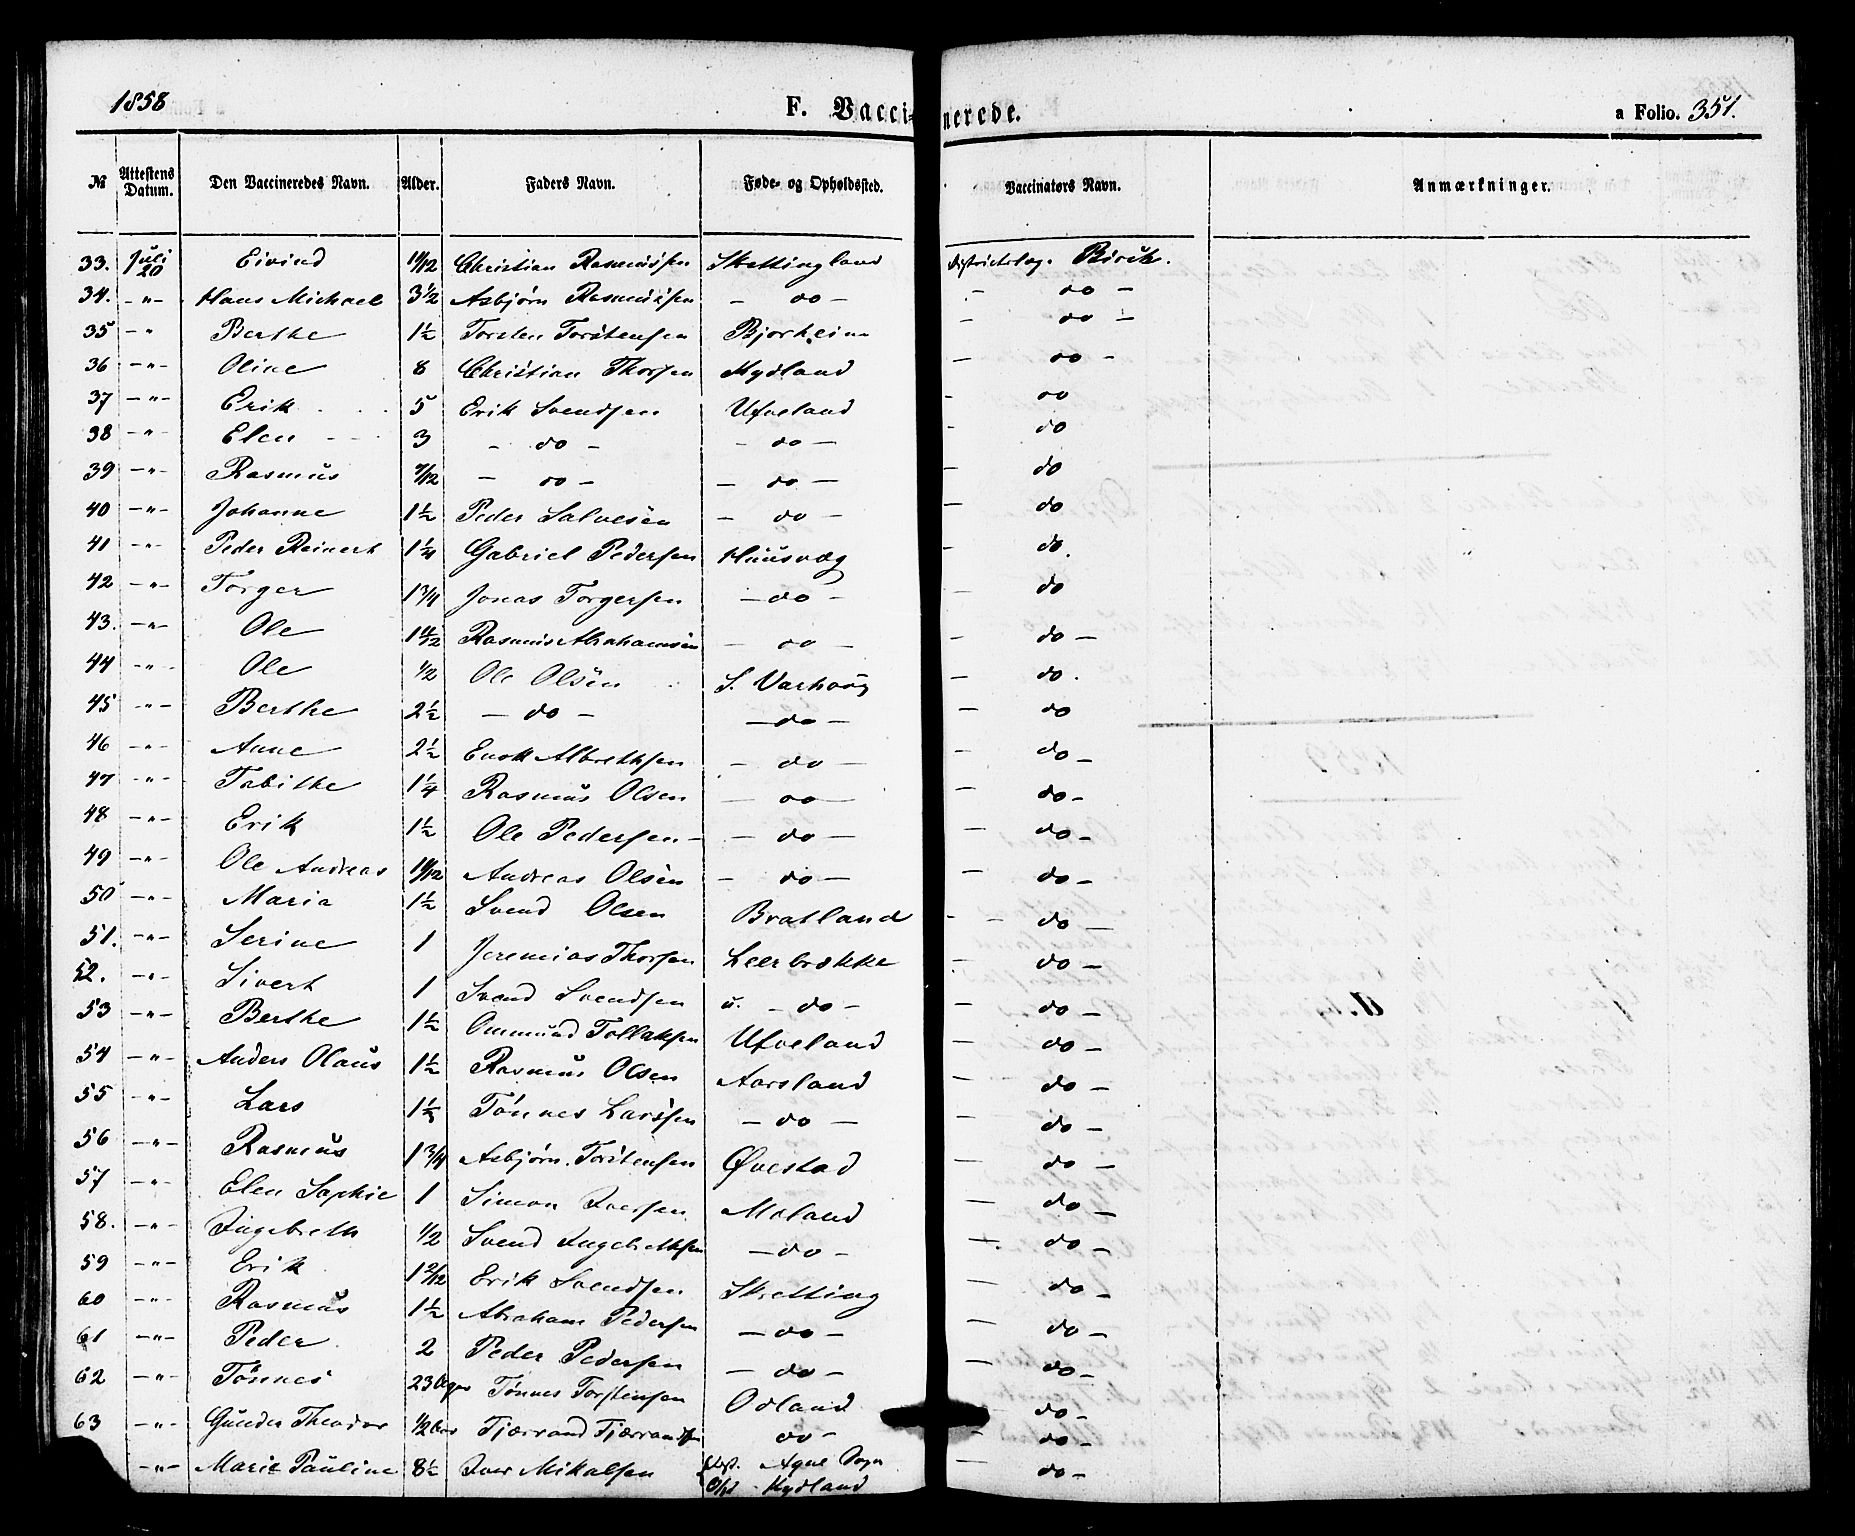 1858 F. Vaccinerede. a Folio. 351.
№ Attestens Datum. Den Vaccineredes Navn. Alder. Faders Navn. Føde- og Opholdssted. Vaccinators Navn. Anmærkninger.
33. Juli 20 Eivind 11/12 Christian Rasmussen Skettingland Districtslæg. Birch.
34. -"- Hans Michael 3½ Asbjørn Rasmussen - do - - do -
35 -"- Berthe 1½ Torsten Torstensen Bjorheim - do -
36 -"- Oline 8 Christian Thorsen Mydland - do -
37 -"- Erik 5 Erik Svendsen Ufveland - do
38 -"- Elen 3 - do - - do - - do
39 -"- Rasmus 7/12 - do - - do - - do
40 -"- Johanne 1½ Peder Salvesen - do - - do
41 -"- Peder Reinert 1¼ Gabriel Pedersen Huusvæg - do.
42 -"- Torger 1¾ Jonas Torgersen - do - - do
43. -"- Ole Rasmus Abrahamsen - do - - do -
44 -"- Ole ½ Ole Olsen S. Varhoug - do.
45 -"- Berthe 2½ - do - - do - - do
46 -"- Anne 2½ Enok Albrethsen - do - - do -
47 -"- Tabithe 1¼ Rasmus Olsen - do - - do -
48 -"- Erik 1½ Ole Pedersen - - do - - do -
49 -"- Ole Andreas 11/12 Andreas Olsen - do - - do -
50 -"- Maria 1½ Svend Olsen Bratland - - do -
51. -"- Serine 1 Jeremias Thorsen Leerbrække - do -
52. -"- Sivert 1 Svend Svendsen u. - do - - do -
53 -"- Berthe 1½ Ommund Tollaksen Ufveland - do -
54 -"- Anders Olaus 1½ Rasmus Olsen Aarsland - do -
55 -"- Lars 1½ Tönnes Larssen - do - - do -
56 -"- Rasmus 1¾ Asbjørn Torstensen Øvestad - do -
57 -"- Elen Sophie 1 Simon Iversen Moland - do -
58. -"- Ingebreth ½ Svend Ingebrethsen - do - - do -
59 -"- Erik 1 2/12 Erik Svendsen Skretting - do -
60 -"- Rasmus 1½ Abraham Pedersen - do - - do -
61 -"- Peder 2 Peder Pedersen - do - - do -
62 -"- Tönnes 23 Uger Tönnes Torstensen Odland - do -
63 -"- Gunder Theodor ½ Aar Tjærrand Tjærrandsen do - - do -
-"- Marie Pauline 8½ Iver Mikalsen Aqne Sogn - do -
Mydland